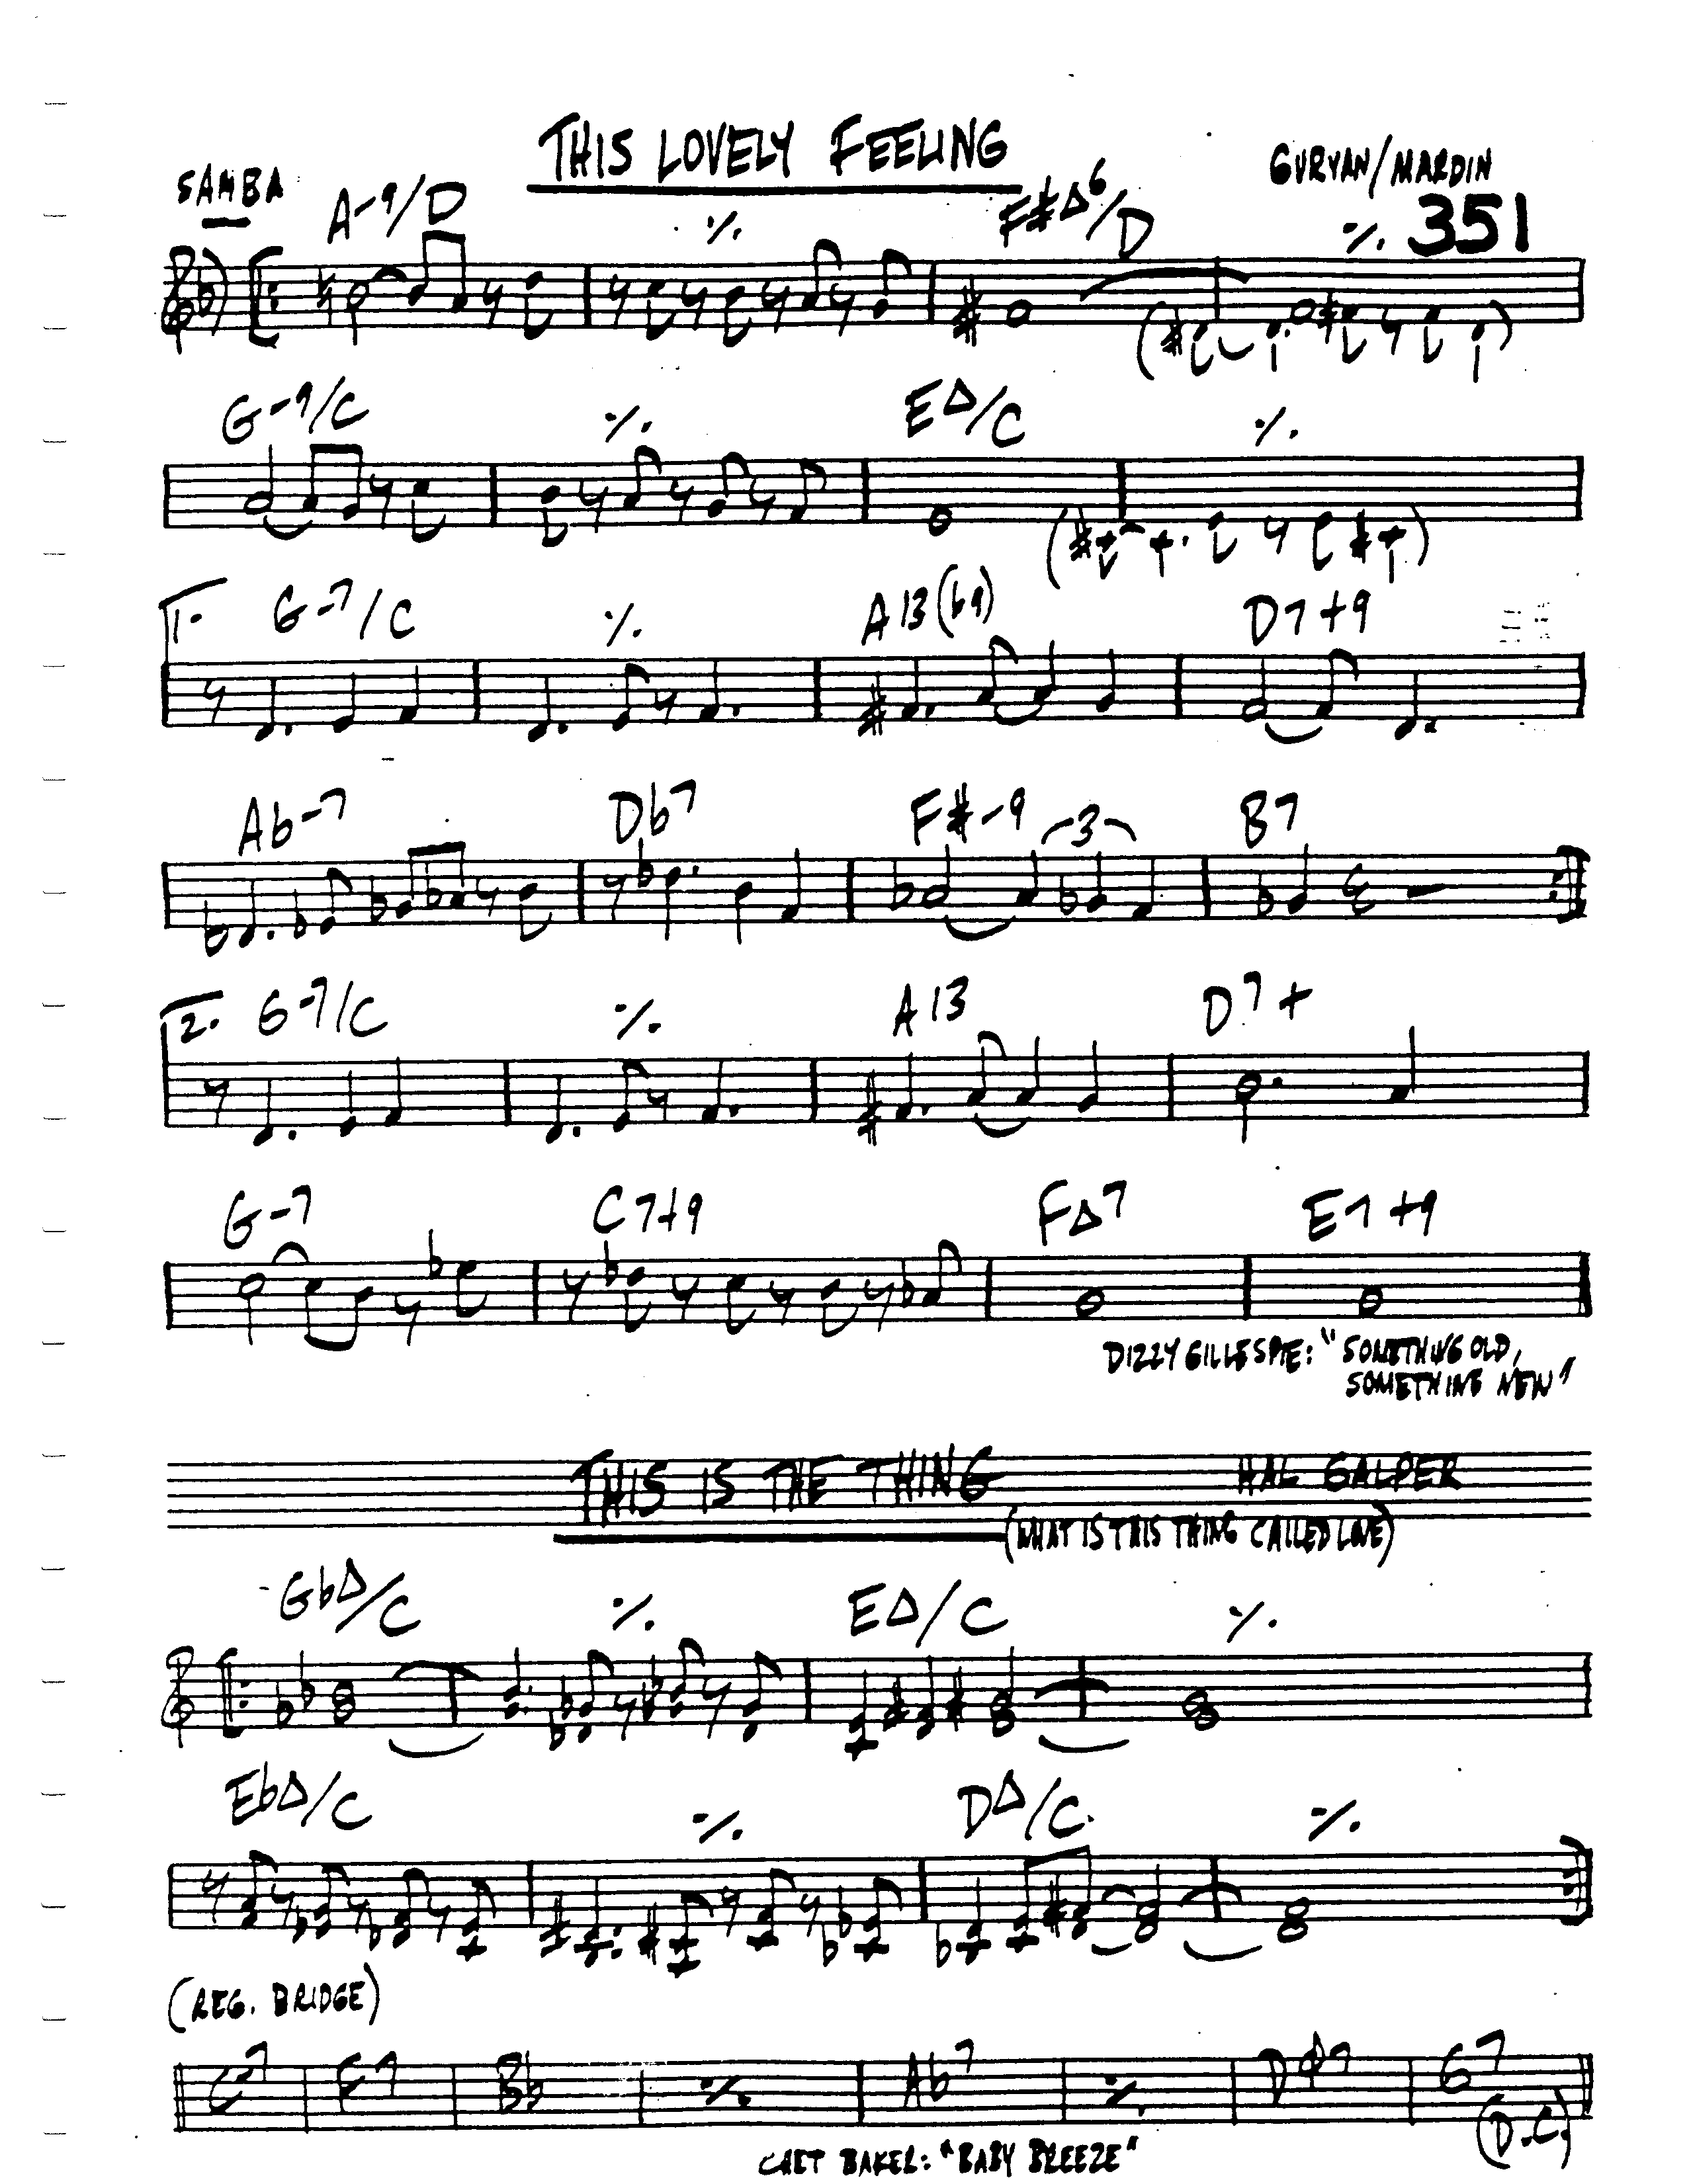 THIS LOVELY FEELING
SAMBA
GURYAN/MARDIN
351
A-9/D ٪ F#Δ6/D ٪
G-9/C ٪ EΔ/C ٪
1. G-7/C ٪ A13(b9) D7+9
Ab-7 Db7 F#-9 3 B7
2. G-7/C ٪ A13 D7+
G-7 C7+9 FΔ7 E7+9
DIZZY GILLESPIE: "SOMETHING OLD,
SOMETHING NEW"
THIS IS THE THING HAL GALPER
(WHAT IS THIS THING CALLED LOVE)
GbΔ/C ٪ EΔ/C ٪
EbΔ/C ٪ DΔ/C ٪
(REG. BRIDGE)
C-7 F7 Bb ٪ Ab7 ٪ Dø7 G7
(D.C.)
CHET BAKER: "BABY BREEZE"